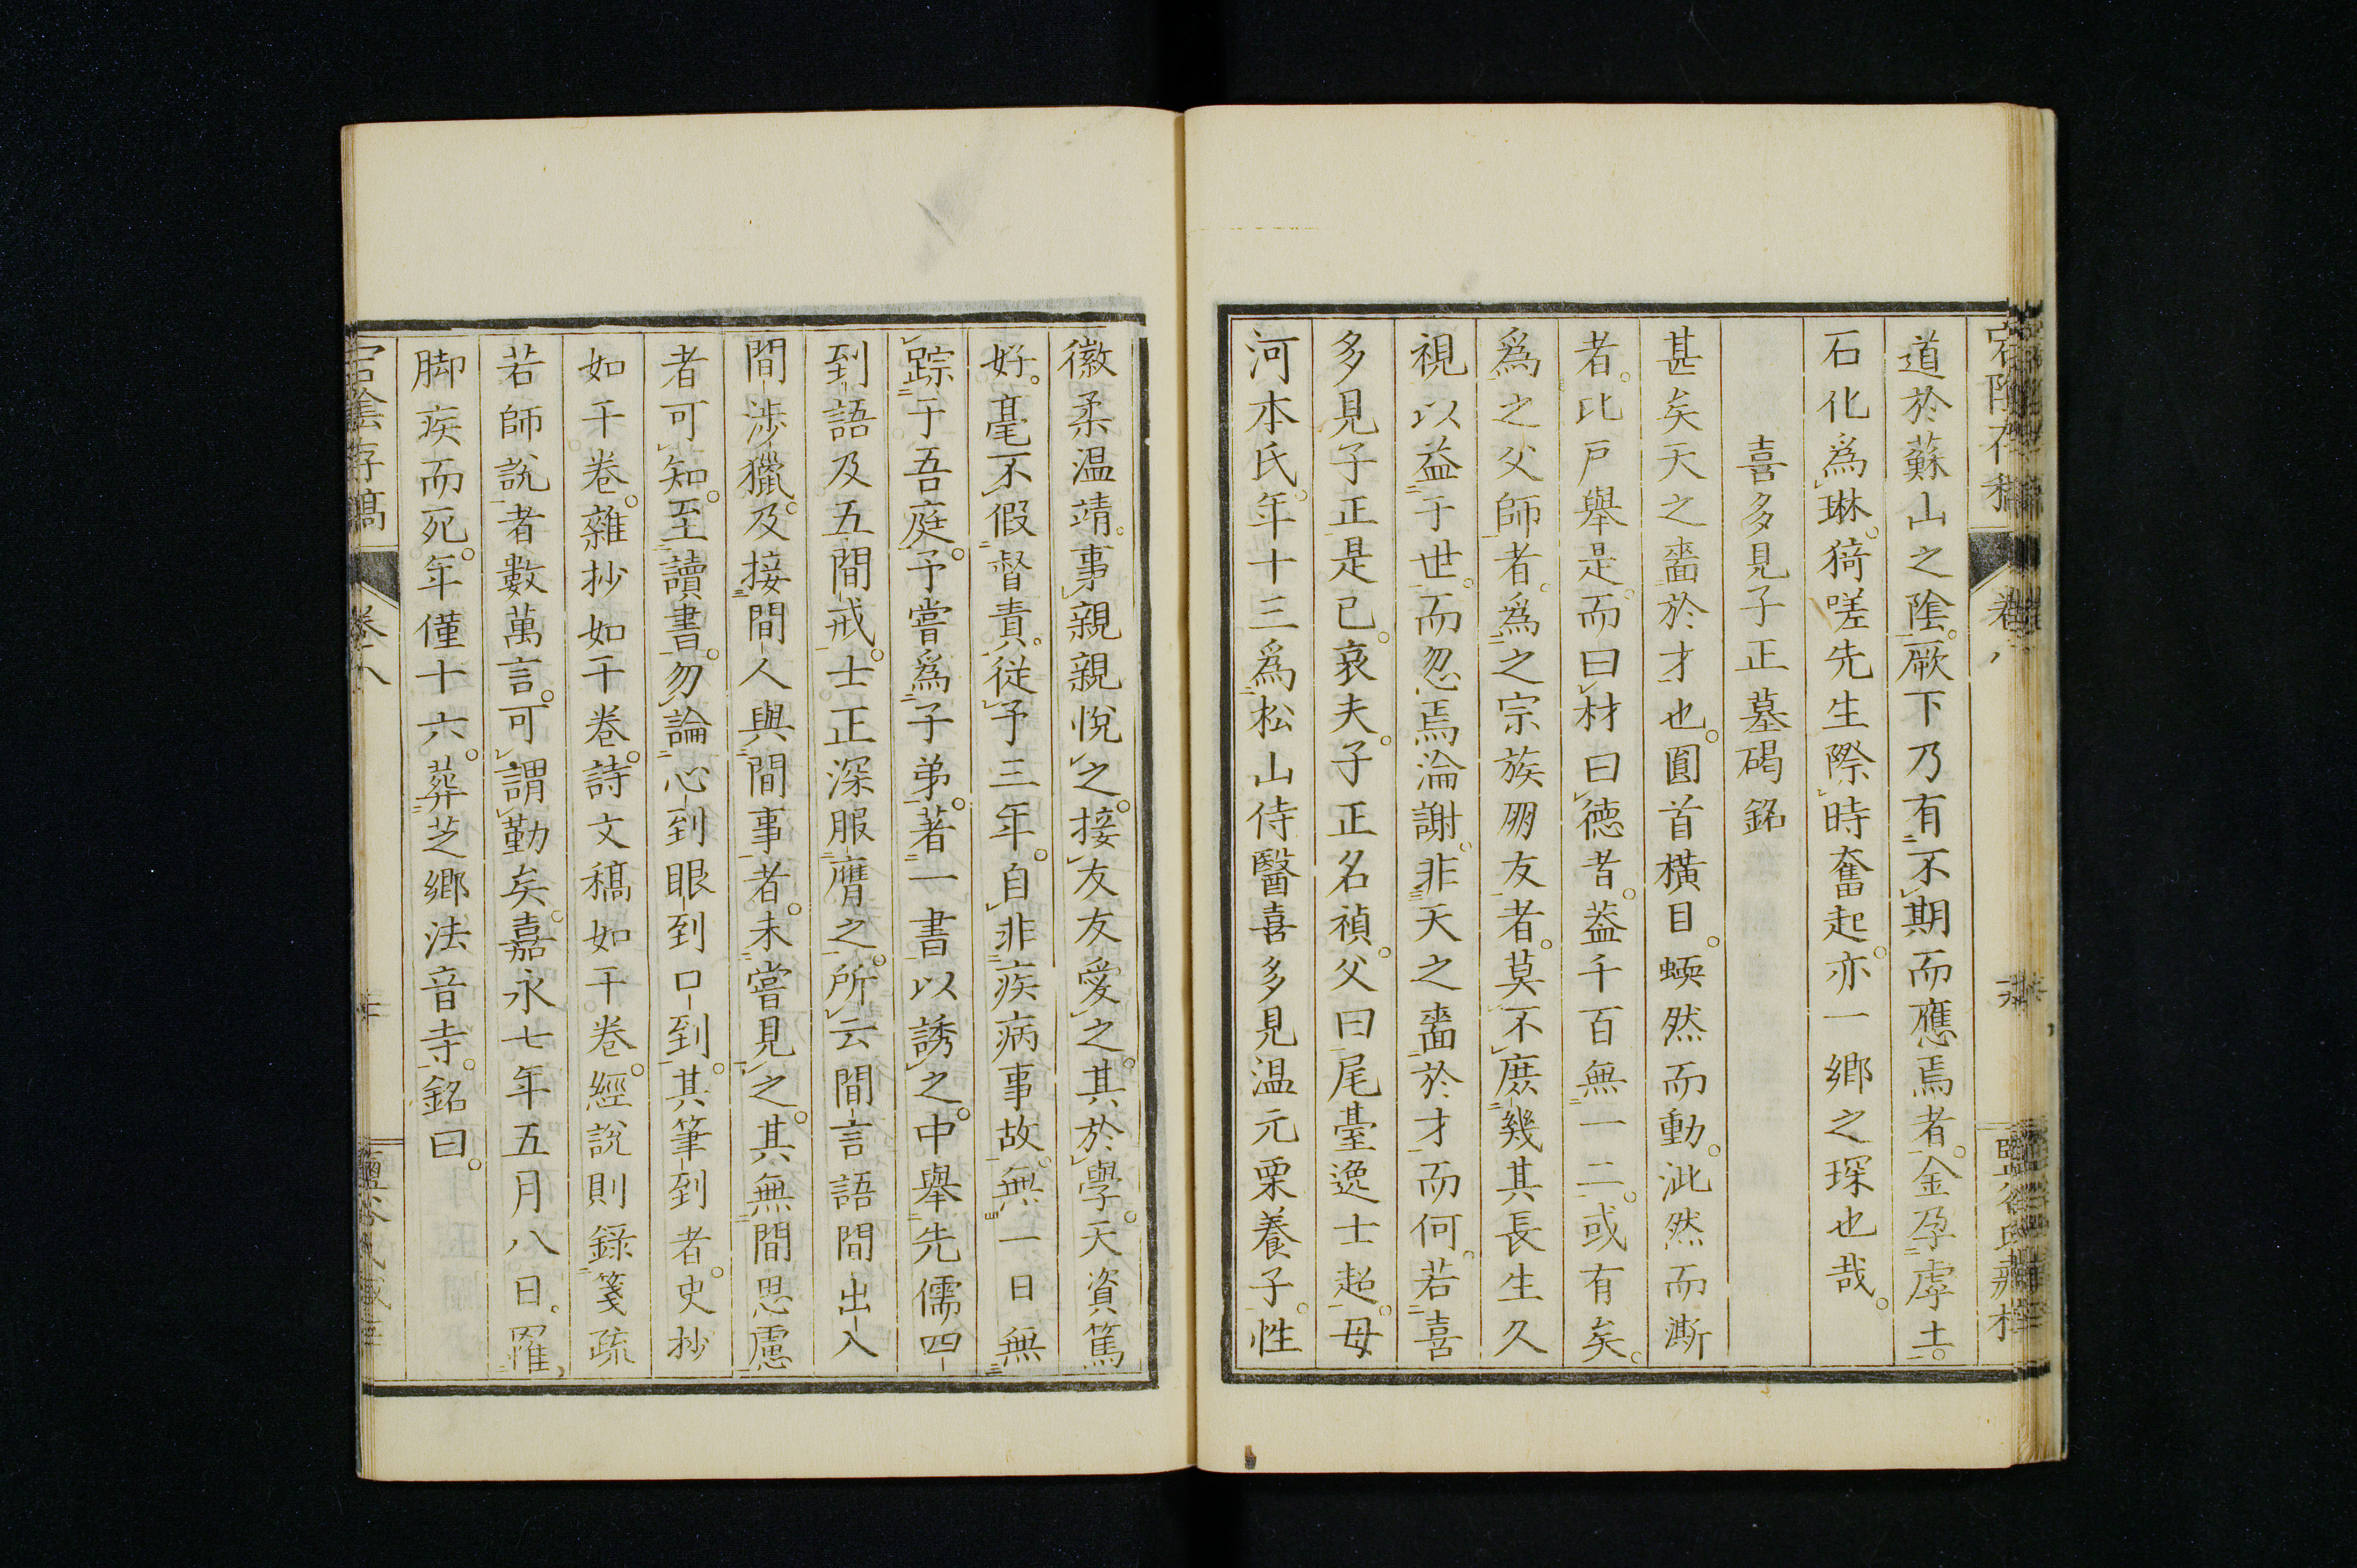 道於蘇山之陰。厥下乃有不期而應焉者。金孕虖土。
石化爲琳。猗嗟先生際時奮起。亦一鄉之琛也哉。
喜多見子正墓碣銘
甚矣天之嗇於才也。圓首橫目。蝡然而動。泚然而澌
者。比戶舉是。而曰材曰德者。蓋千百無一二。或有矣。
爲之父師者。爲之宗族朋友者。莫不庶幾其長生久
視以益于世。而忽焉淪謝。非天之嗇於才而何。若喜
多見子正是已。哀夫。子正名禎。父曰尾臺逸士超。母
河本氏。年十三爲松山侍醫喜多見温元栗養子。性
徽柔温靖。事親親悅之。接友友愛之。其於學。天資篤
好。毫不假督責。從予三年。自非疾病事故。無一日無
踪于吾庭。予嘗爲子弟。著一書以誘之。中舉先儒四
到語及五間戒。士正深服膺之。所云間言語間出入
間渉獵。及接間人與間事者。未嘗見之。其無間思慮
者可知。至讀書。勿論心到眼到口到。其筆到者。史抄
如干卷。雜抄如干卷。詩文稿如干卷。經說則錄箋疏
若師說者數萬言。可謂勤矣。嘉永七年五月八日。罹
脚疾而死。年僅十六。葬芝鄉法音寺。銘曰。
宕陰存稿
卷八